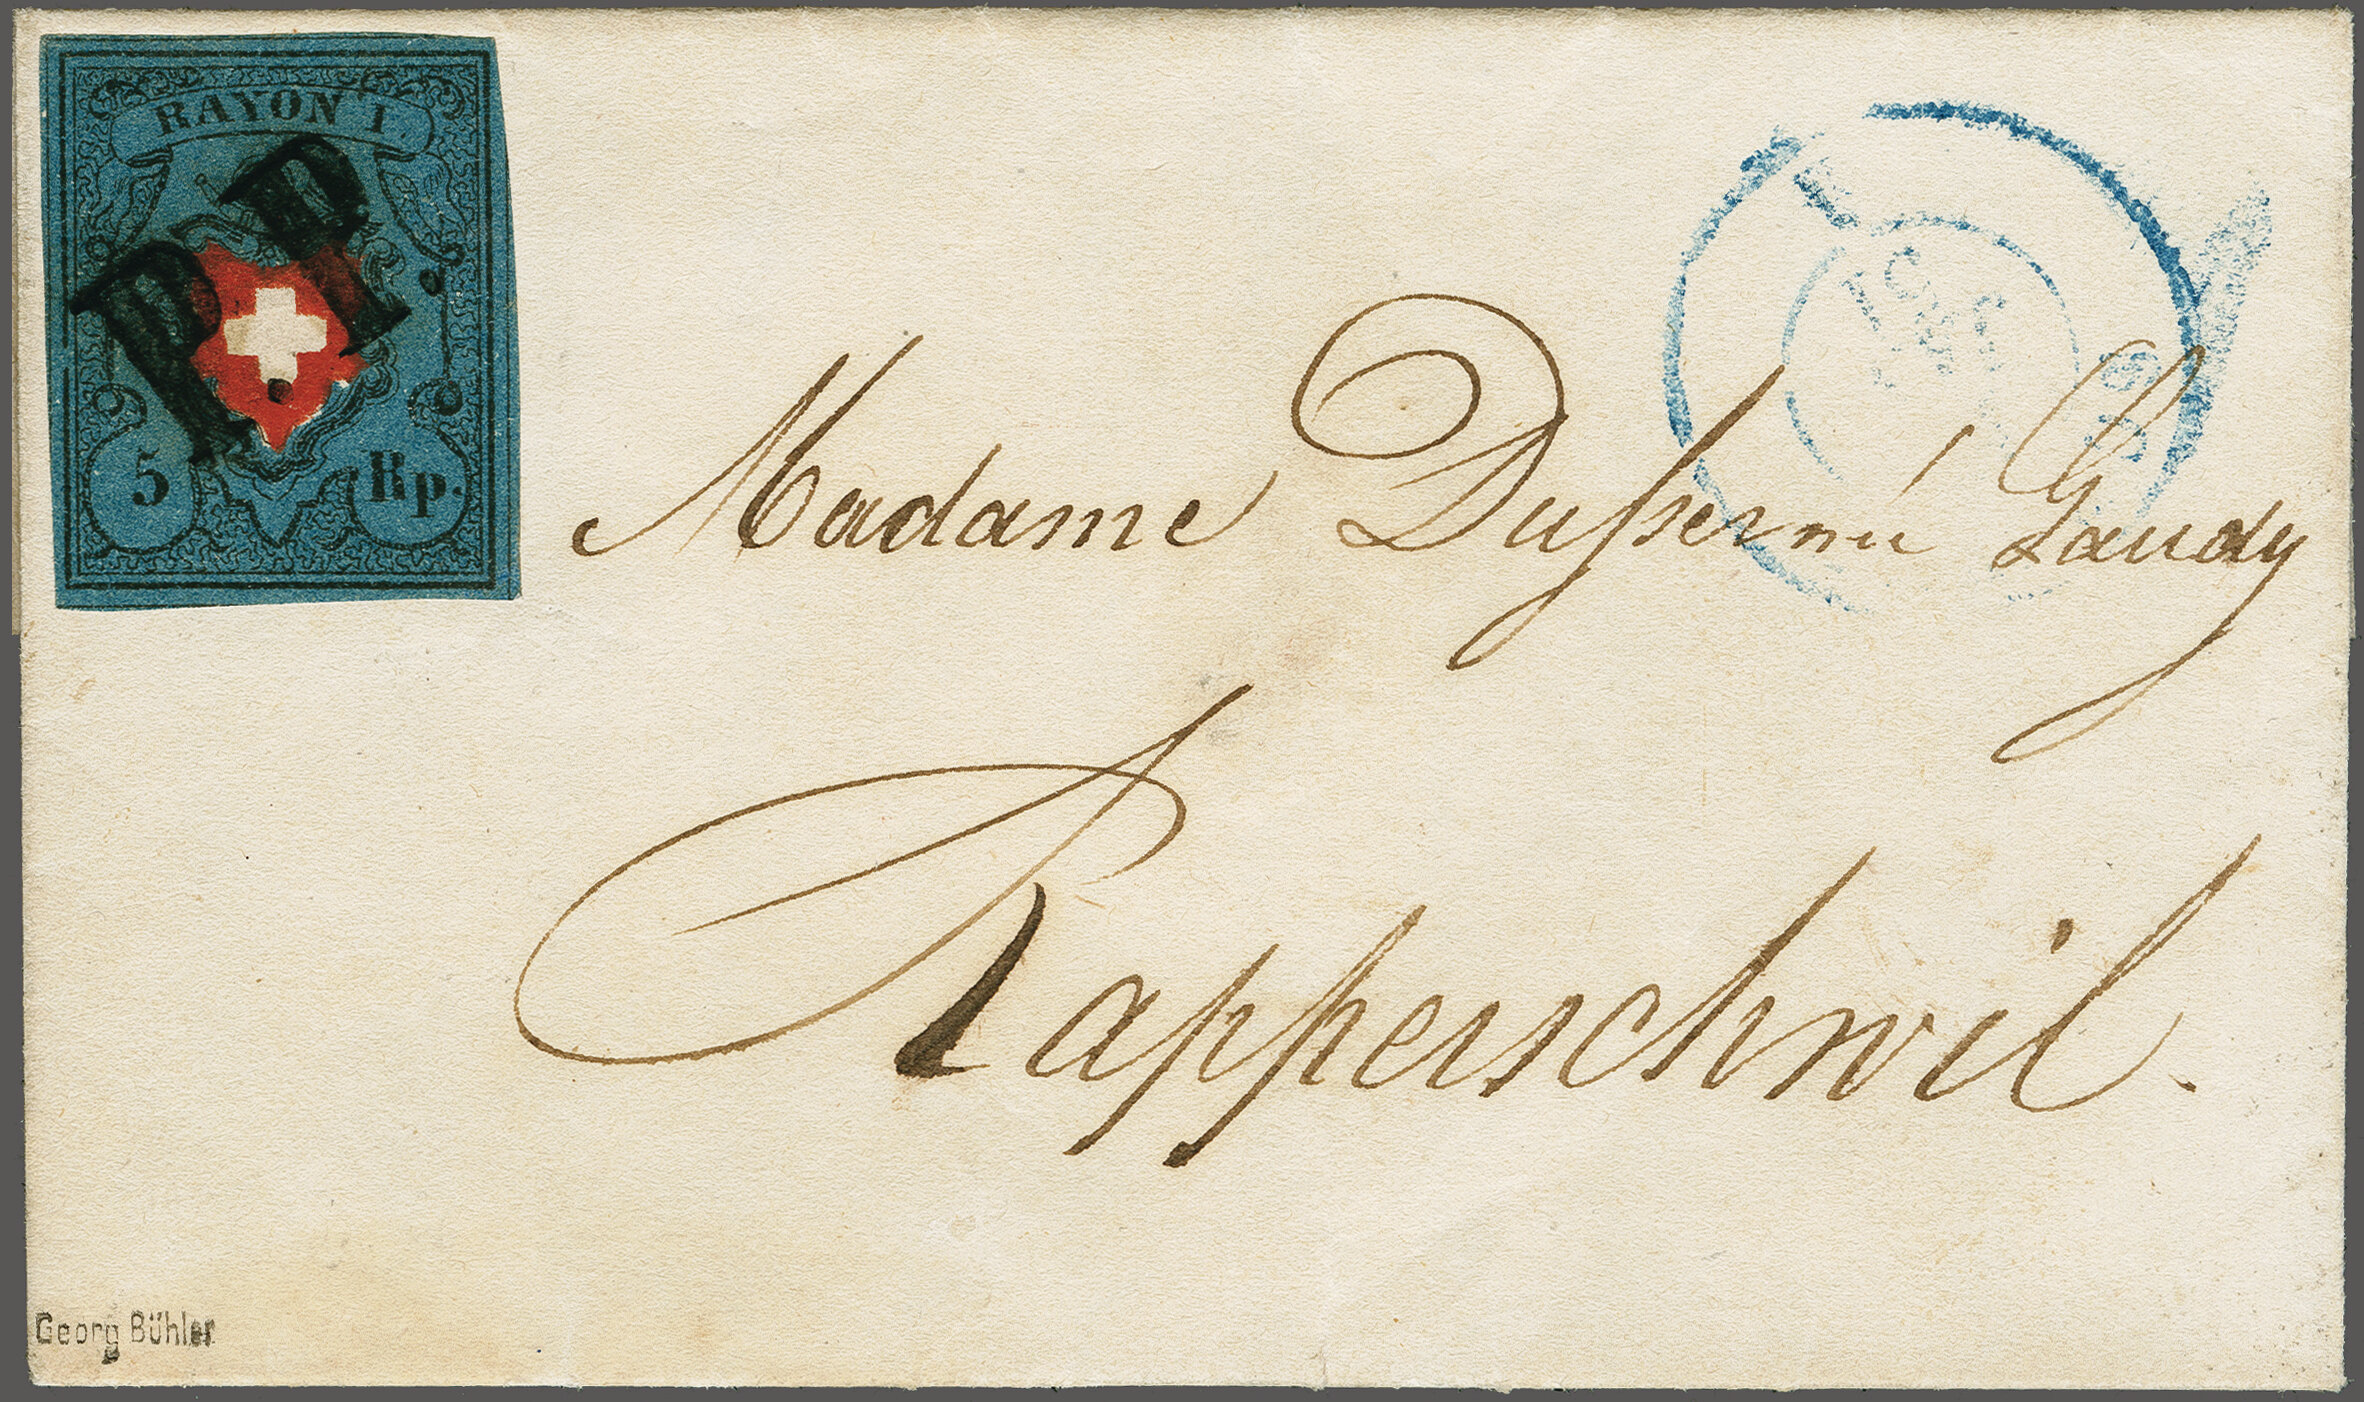 RAYON I.
P.P.
5 Rp.
Madame Dusser née Gaudy
Rapperschwil.
Georg Bühler